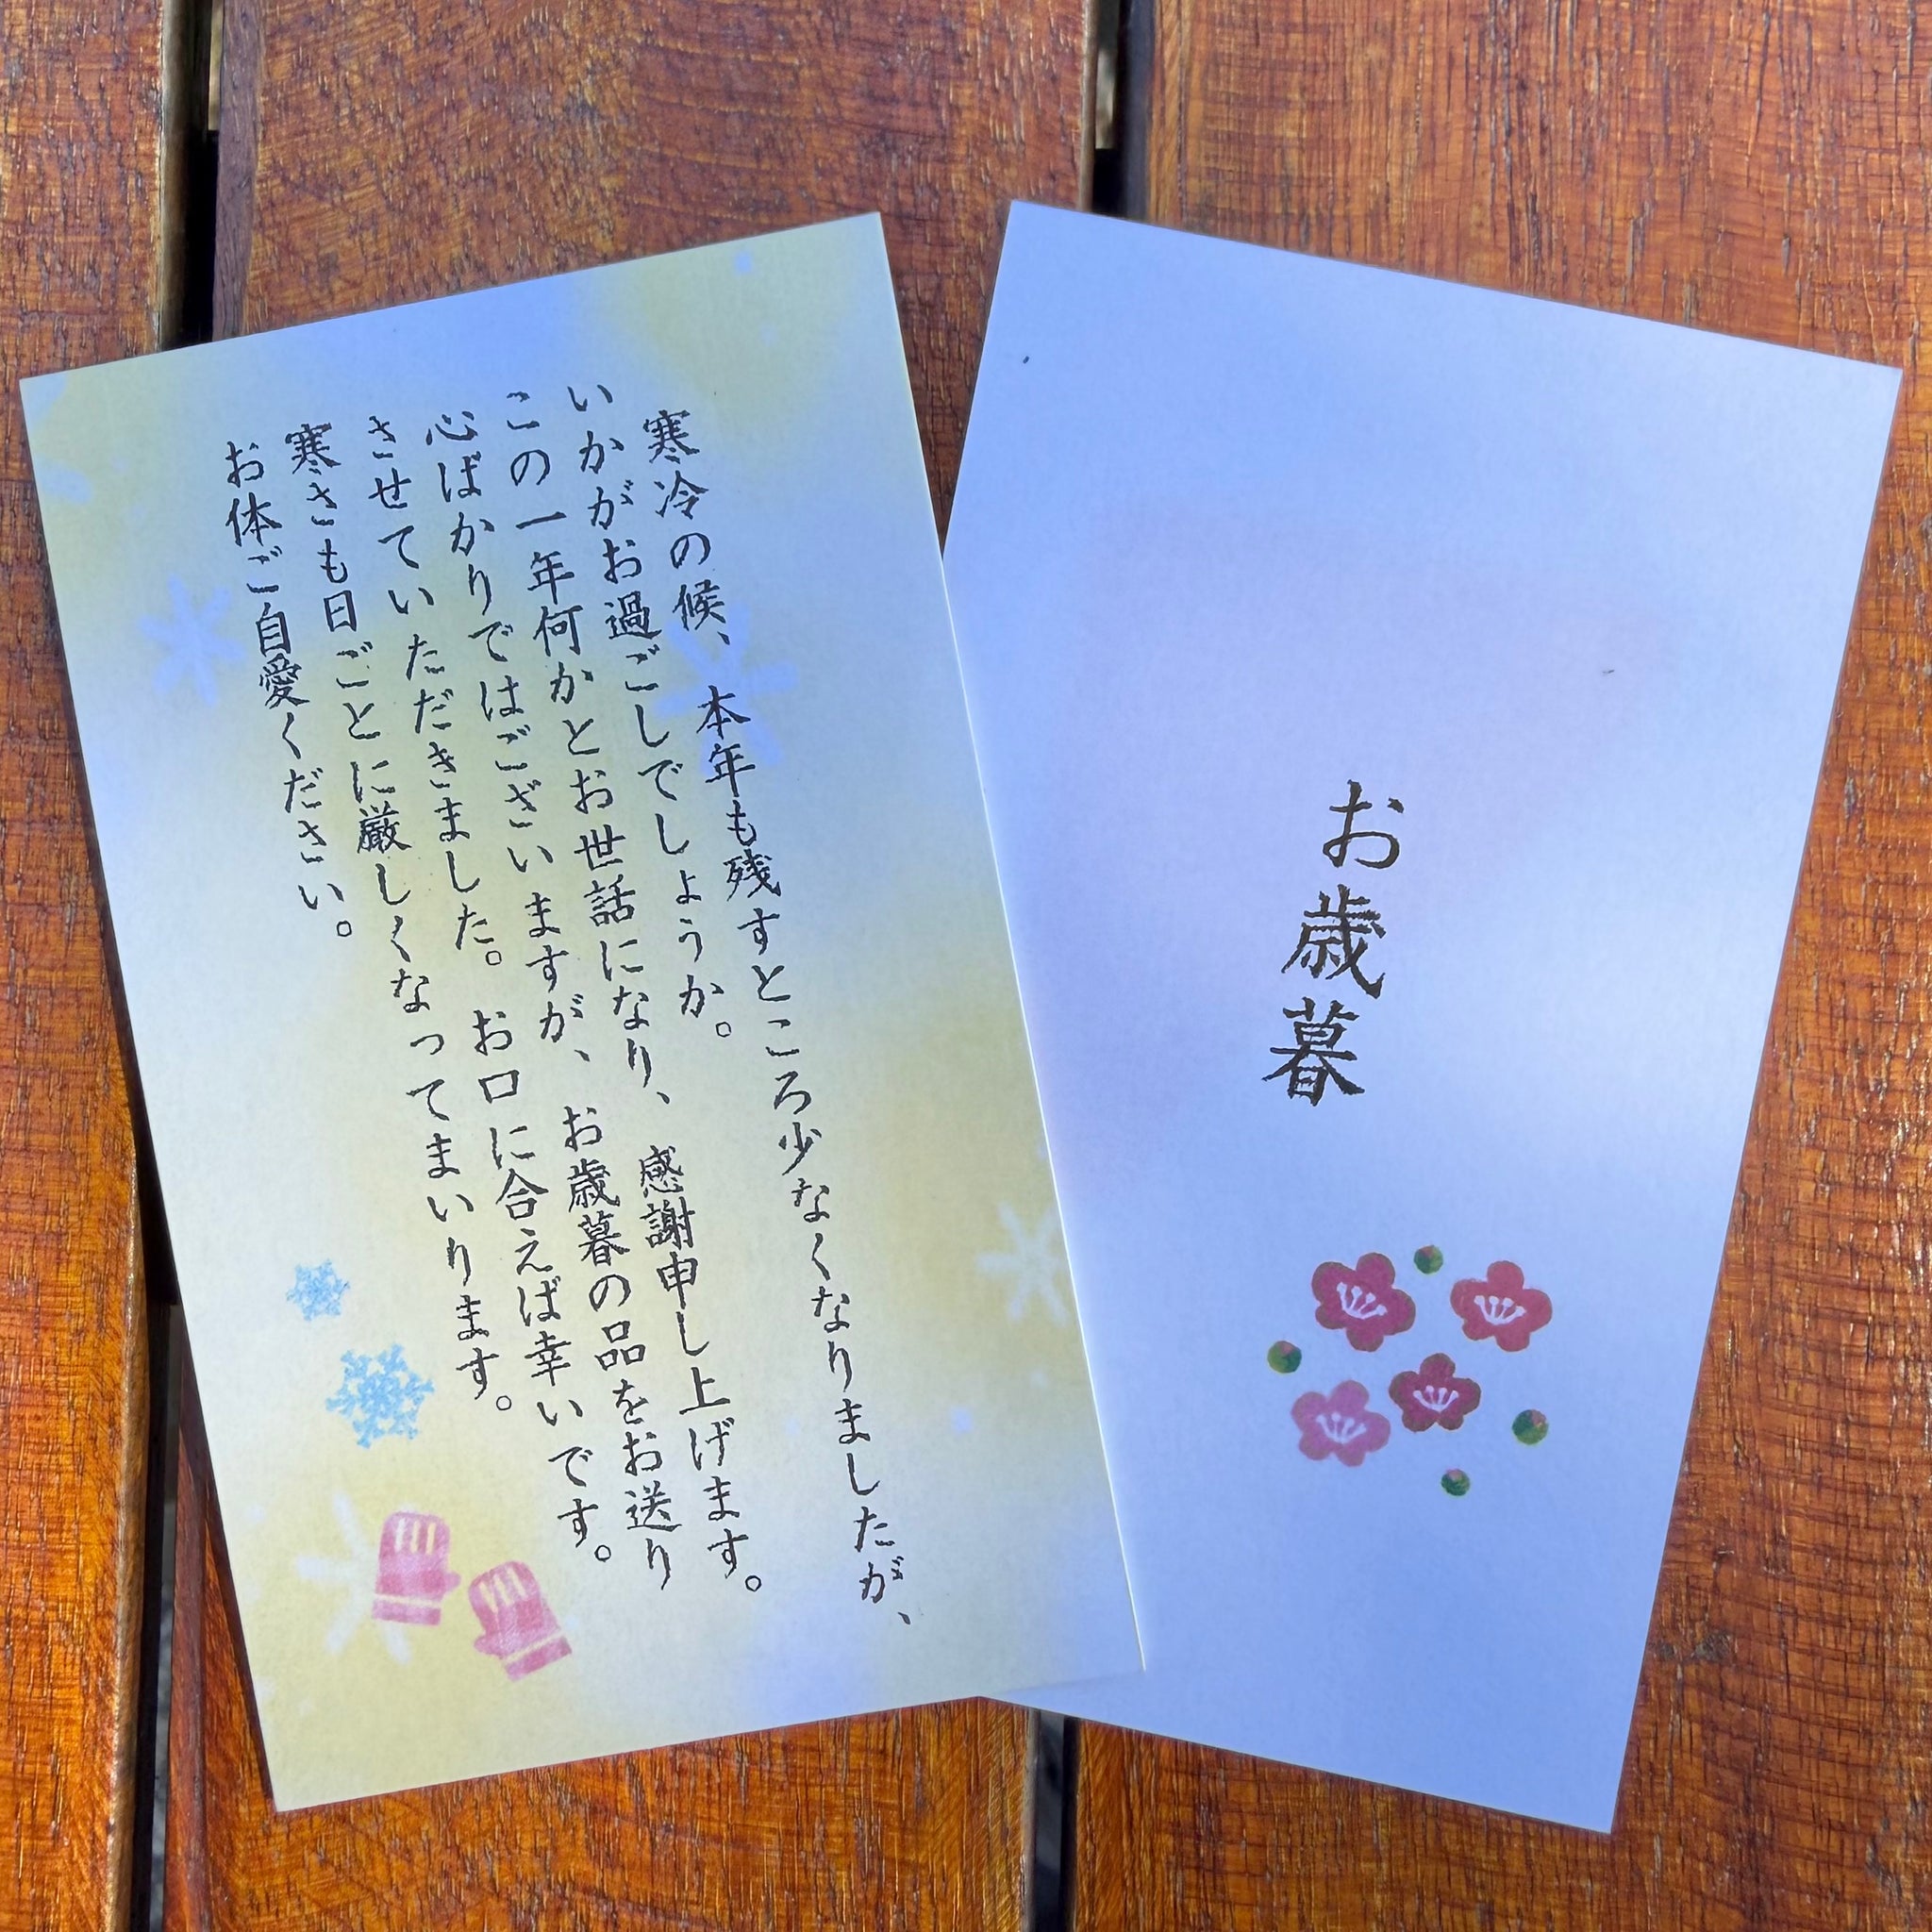 寒冷の候、本年も残すところ少なくなりましたが、
いかがお過ごしでしょうか。
この一年何かとお世話になり、感謝申し上げます。
心ばかりではございますが、お歳暮の品をお送り
させていただきました。お口に合えば幸いです。
寒さも日ごとに厳しくなってまいります。
お体ご自愛ください。
お歳暮